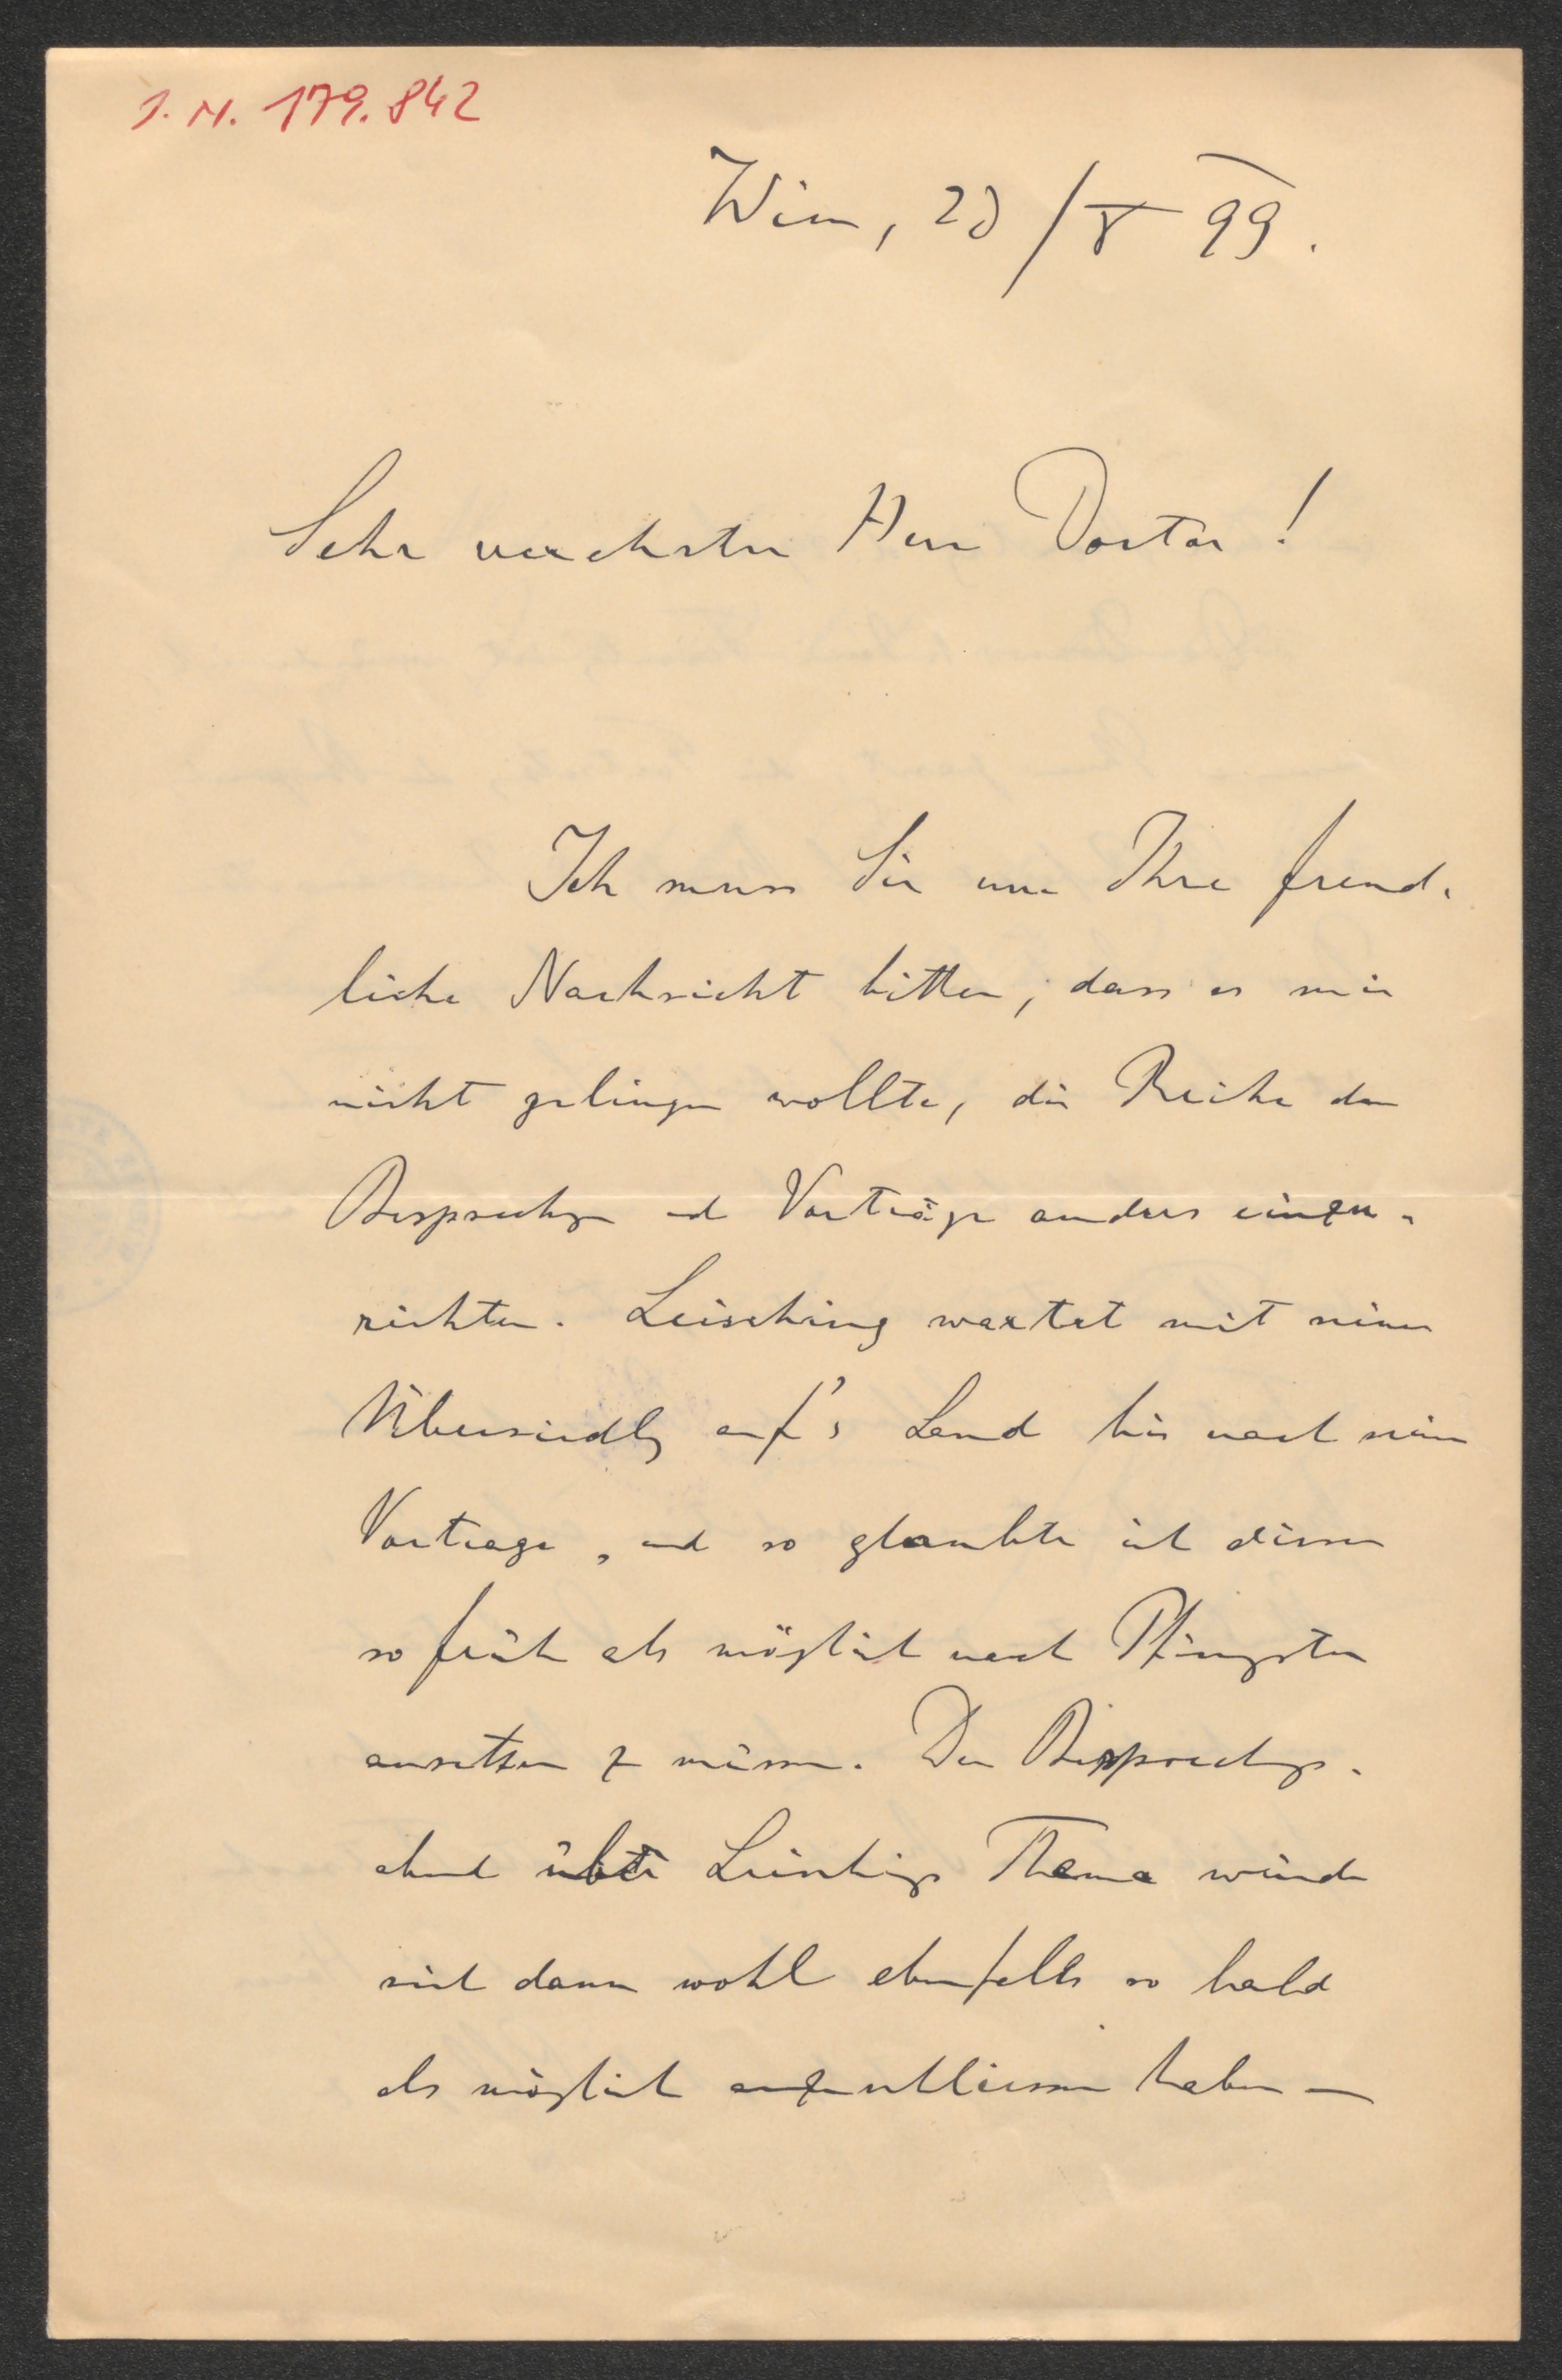 I. N. 179.842
Wien, 20/V 99.
Sehr verehrter Herr Doctor!
Ich muss Sie um Ihre freund-
liche Nachsicht bitten, dass es mir
nicht gelingen wollte, die Reihe der
Besprechungen und Vorträge anders einzu-
richten. Leisching wartet mit seiner
Übersiedlung auf's Land bis nach seinem
Vortrage, und so glaubte ich diesen
so früh als möglich nach Pfingsten
ansetzen zu müssen. Der Besprechungs-
abend über Leischings Thema würde
sich dann wohl ebenfalls so bald
als möglich anzuschliessen haben —